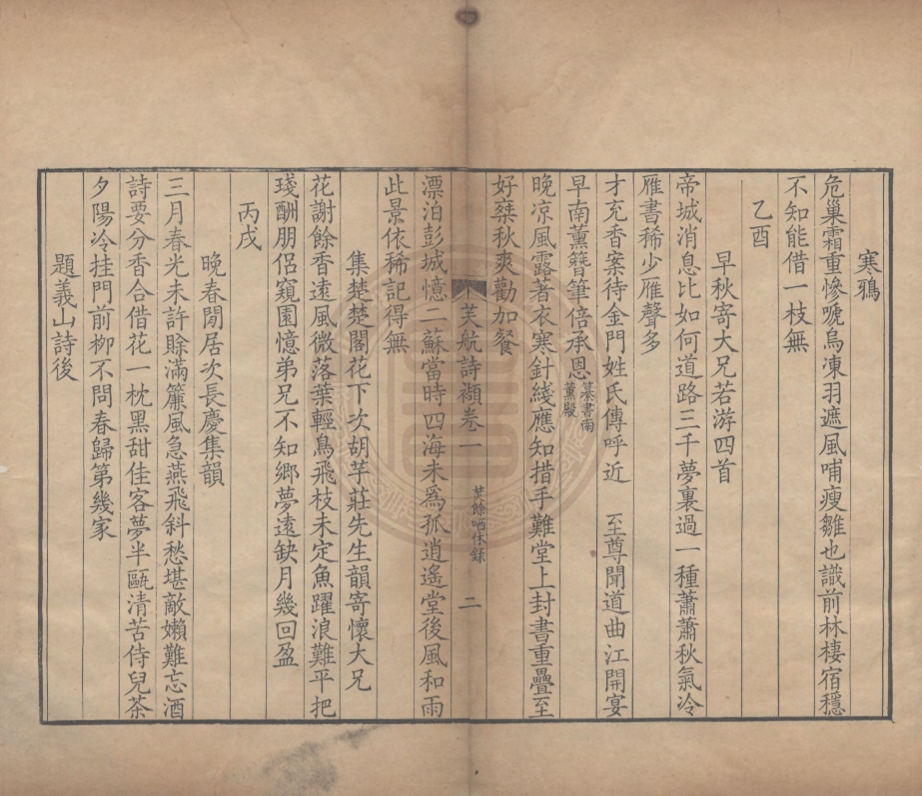 寒鴉
危巢霜重慘唬烏凍羽遮風哺瘦雛也識前林棲宿穩
不知能借一枝無
乙酉
早秋寄大兄若游四首
帝城消息比如何道路三千夢裏過一種蕭蕭秋氣冷
雁書稀少雁聲多
才充香案待金門姓氏傳呼近　至尊聞道曲江開宴
早南薰簪筆倍承恩纂書南薰殿
晚凉風露著衣寒針綫應知措手難堂上封書重疊至
好乘秋爽勸加餐
芙航詩襭卷一
萸餘哂休錄
二
漂泊彭城憶二蘇當時四海未為孤逍遙堂後風和雨
此景依稀記得無
集楚楚閣花下次胡芋莊先生韻寄懷大兄
花謝餘香遠風微落葉輕鳥飛枝未定魚躍浪難平把
琖酬朋侶窺園憶弟兄不知鄉夢遠缺月幾回盈
丙戌
晚春閒居次長慶集韻
三月春光未許賒滿簾風急燕飛斜愁堪敵嬾難忘酒
詩要分香合借花一枕黑甜佳客夢半甌清苦侍兒茶
夕陽冷挂門前柳不問春歸第幾家
題義山詩後